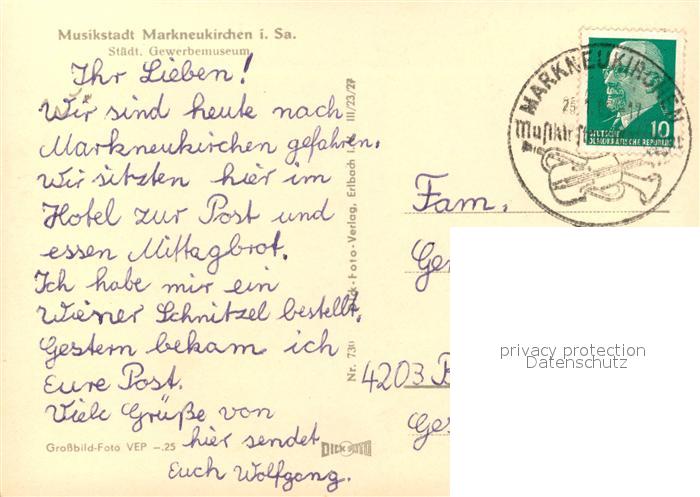 Musikstadt Markneukirchen i. Sa.
Städt. Gewerbemuseum
Ihr Lieben!
Wir sind heute nach
Markneukirchen gefahren.
Wir sitzten hier im
Hotel zur Post und
essen Mittagbrot.
Ich habe mir ein
Wiener Schnitzel bestellt.
Gestern bekam ich
Eure Post.
Viele Grüße von
hier sendet
Euch Wolfgang.
Großbild-Foto VEP -.25
DICK
Nr. 730
-Foto-Verlag, Erlbach
III/23/27
MARKNEUKIRCHEN
10
DEUTSCHE
DEMOKRATISCHE REPUBLIK
Fam.
4203
privacy protection
Datenschutz